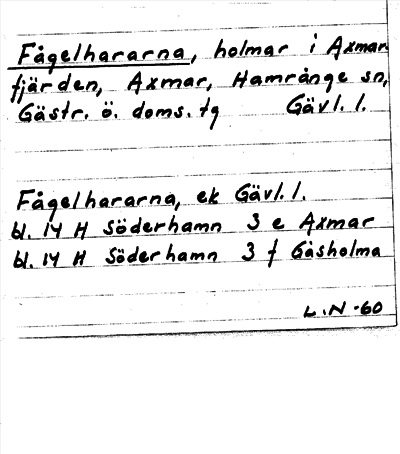 Fågelhararna, holmar i Axmar-
fjärden, Axmar, Hamrånge sn,
Gästr. ö. doms. tg Gävl. l.
Fågelhararna, ek Gävl. l.
bl. 14 H Söderhamn 3 e Axmar
bl. 14 H Söderhamn 3 f Gåsholma
L.N -60